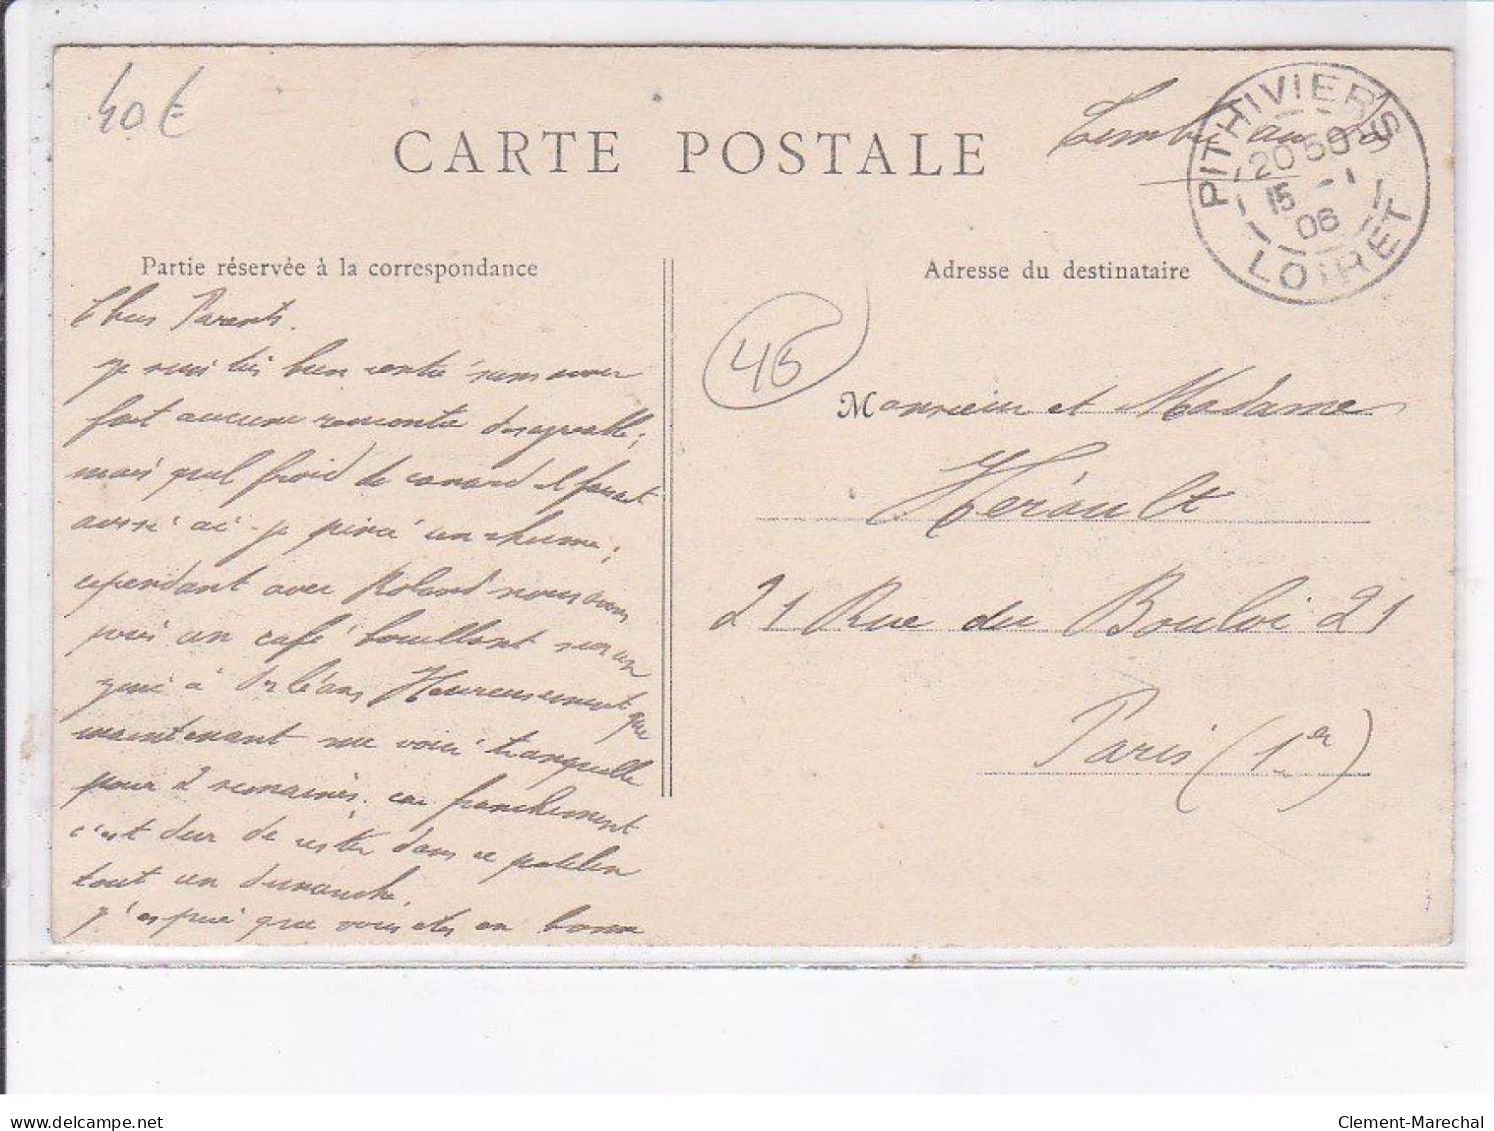 40€
CARTE POSTALE
Timbre au
PITHIVIERS
20 50
15 -1
06
LOIRET
Partie réservée à la correspondance
Adresse du destinataire
Chers Parents.
je suis très bien rentré sans avoir
fait aucune rencontre désagréable;
mais quel froid de canard il faisait
aussi ai-je pincé un rhume;
cependant avec Roland nous avons
pris un café bouillant sur un
à Orléans Heureusement que
maintenant me voici tranquille
pour 2 semaines, car franchement
c'est dur de rester dans ce patelin
tout un dimanche.
J'espère que vous êtes en bonne
45
Monsieur et Madame
Hérault
21 Rue du Bouloi 21
Paris (1er)
delcampe.net
Clement-Marechal